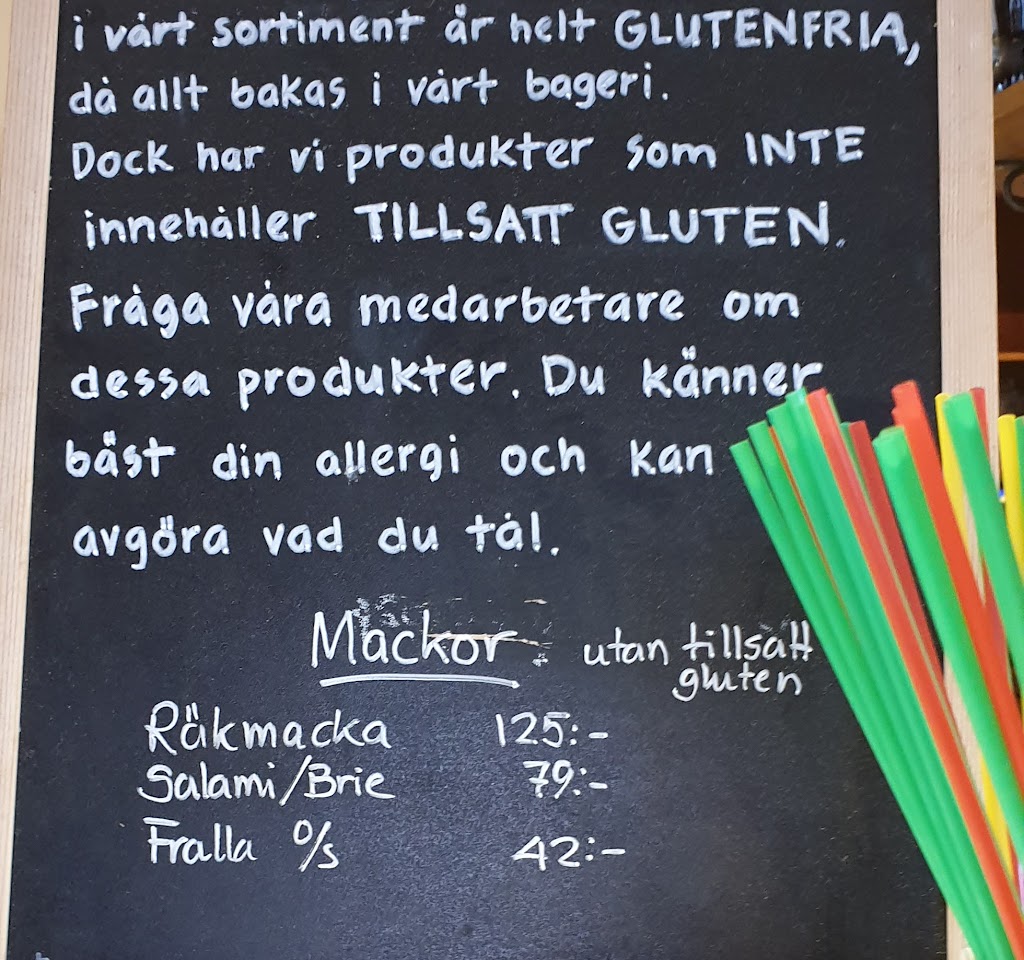 i vårt sortiment är helt GLUTENFRIA,
då allt bakas i vårt bageri.
Dock har vi produkter som INTE
innehåller TILLSATT GLUTEN.
Fråga våra medarbetare om
dessa produkter. Du känner
bäst din allergi och kan
avgöra vad du tål.
Mackor: utan tillsatt
gluten
Räkmacka 125:-
Salami/Brie 79:-
Fralla o/s 42:-